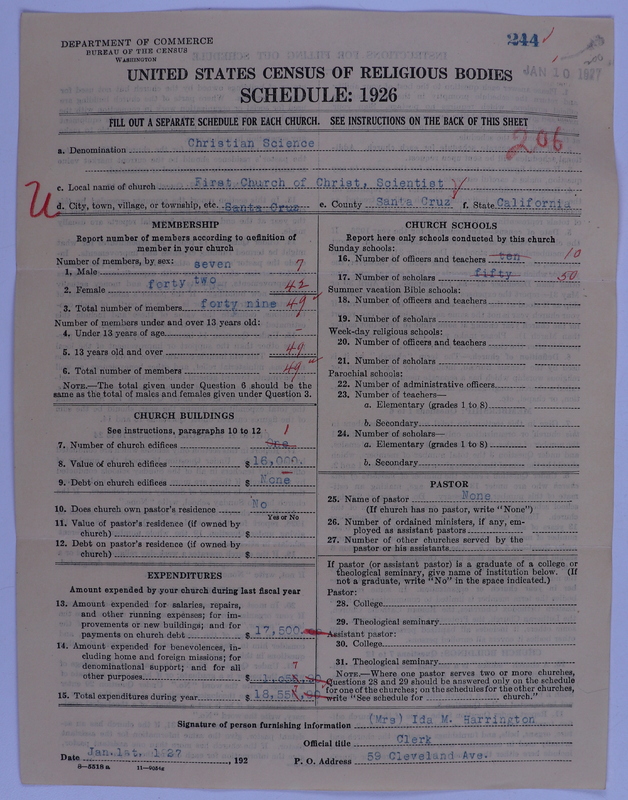 DEPARTMENT OF COMMERCE
BUREAU OF THE CENSUS
WASHINGTON
244
JAN 10 1927
UNITED STATES CENSUS OF RELIGIOUS BODIES
SCHEDULE: 1926
FILL OUT A SEPARATE SCHEDULE FOR EACH CHURCH. SEE INSTRUCTIONS ON THE BACK OF THIS SHEET
a. Denomination Christian Science
206
c. Local name of church First Church of Christ, Scientist
U
d. City, town, village, or township, etc. Santa Cruz e. County Santa Cruz f. State California
MEMBERSHIP
Report number of members according to definition of
member in your church
Number of members, by sex:
1. Male seven 7
2. Female forty two 42
3. Total number of members forty nine 49
Number of members under and over 13 years old:
4. Under 13 years of age –
5. 13 years old and over 49
6. Total number of members 49
NOTE.—The total given under Question 6 should be the
same as the total of males and females given under Question 3.
CHURCH BUILDINGS
See instructions, paragraphs 10 to 12
7. Number of church edifices One 1
8. Value of church edifices $ 16,000.
9. Debt on church edifices $ None
10. Does church own pastor's residence No
Yes or No
11. Value of pastor's residence (if owned by
church) $
12. Debt on pastor's residence (if owned by
church) $
EXPENDITURES
Amount expended by your church during last fiscal year
13. Amount expended for salaries, repairs,
and other running expenses; for im-
provements or new buildings; and for
payments on church debt $ 17,500.
14. Amount expended for benevolences, in-
cluding home and foreign missions; for
denominational support; and for all
other purposes $
15. Total expenditures during year $
CHURCH SCHOOLS
Report here only schools conducted by this church
Sunday schools:
16. Number of officers and teachers ten 10
17. Number of scholars fifty 50
Summer vacation Bible schools:
18. Number of officers and teachers
19. Number of scholars
Week-day religious schools:
20. Number of officers and teachers
21. Number of scholars
Parochial schools:
22. Number of administrative officers
23. Number of teachers—
a. Elementary (grades 1 to 8)
b. Secondary
24. Number of scholars—
a. Elementary (grades 1 to 8)
b. Secondary
PASTOR
25. Name of pastor None
(If church has no pastor, write "None")
26. Number of ordained ministers, if any, em-
ployed as assistant pastors
27. Number of other churches served by the
pastor or his assistants
If pastor (or assistant pastor) is a graduate of a college or
theological seminary, give name of institution below. (If
not a graduate, write "No" in the space indicated.)
Pastor:
28. College
29. Theological seminary
Assistant pastor:
30. College
31. Theological seminary
NOTE.—Where one pastor serves two or more churches,
Questions 28 and 29 should be answered only on the schedule
for one of the churches; on the schedules for the other churches,
write "See schedule for church."
Signature of person furnishing information (Mrs) Ida M. Harrington
Official title Clerk
Date Jan.1st. 1927 , 192
P. O. Address 59 Cleveland Ave.
8—5518a 11—9054a